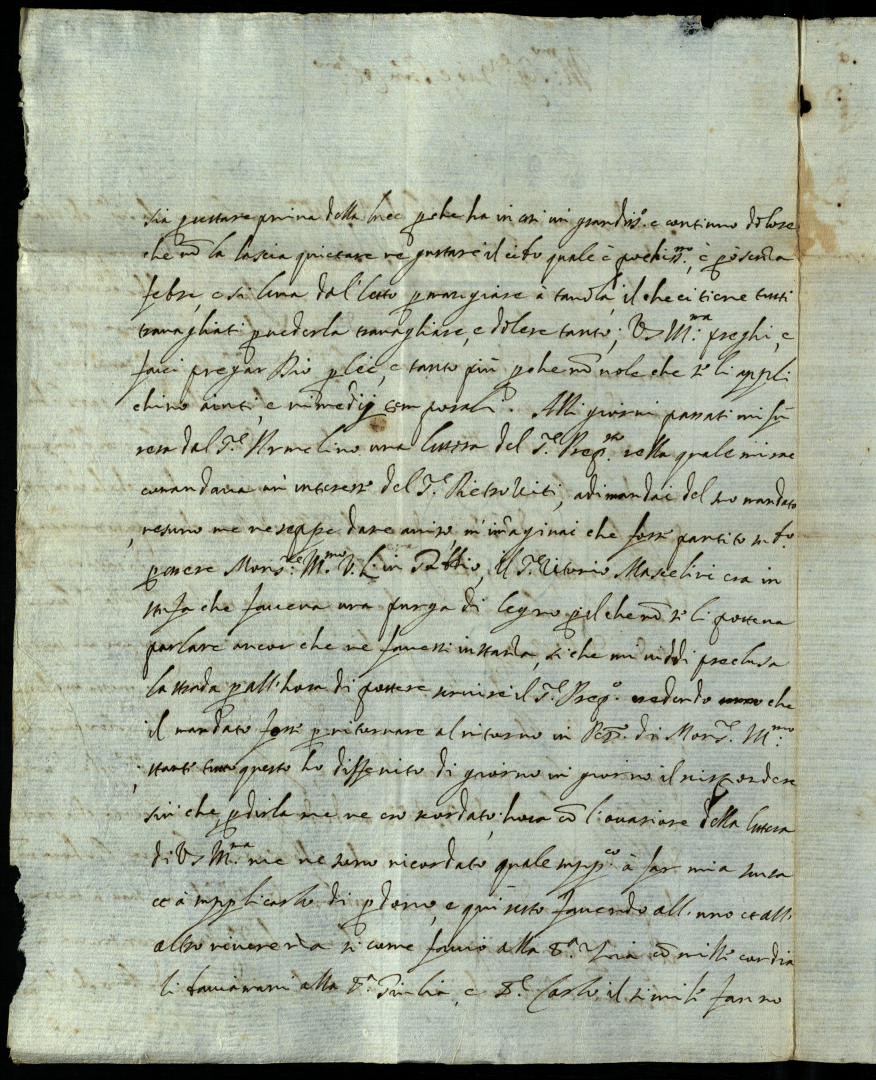 sia p restare priva della luce pche ha in essi un grandiss.º e continuo dolore
che nõ la lascia quietare ne gustare il cibo quale è pochiss.mo, è pò senza
febre, e si leva dal letto p mangiare à tavola, il che ci tiene tutti
travagliati p vederla travagliare, e dolere tanto; VS M.ma preghi, e
facci pregar Dio p lei, e tanto più pche nõ vole che se li appli
chino aiuti, e rimedij temporali. Alli giorni passati mi fù
resa dal S.r Armelino una lettera del S.r Prep.to nella quale mi rac
comandava un interesse del S.r Pietro Viti, adimandai del suo mandato
, nesuno me ne seppe dare aviso, m'imaginai che fosse partito
p essere Mons.re Ill.mo V. L. in il S.r Vitorio Mascelini era in
stufa che faceva una purga di legno p il che nõ se li poteva
parlare ancor che ne facessi instanza, si che mi viddi preclusa
la strada p all'hora di potere servire il S.r Prep.o credendo che
il mandato fosse p ritornare al ritorno in di Mons.r Ill.mo
; stante tutto questo ho differito di giorno in giorno il rispondere
sin che p dirla me ne ero scordato, hora cõ l'occasione della lettera
di VS M.ma me ne sono ricordato quale supp.co à far mia scusa
et à supplicarlo di pdono, e qui resto facendo all'uno et all'
altro reverenza si come faccio alla S.ra Livia cõ mille cordia
li baciamani alla S.ra Giulia, e S.r Carlo il simile fanno